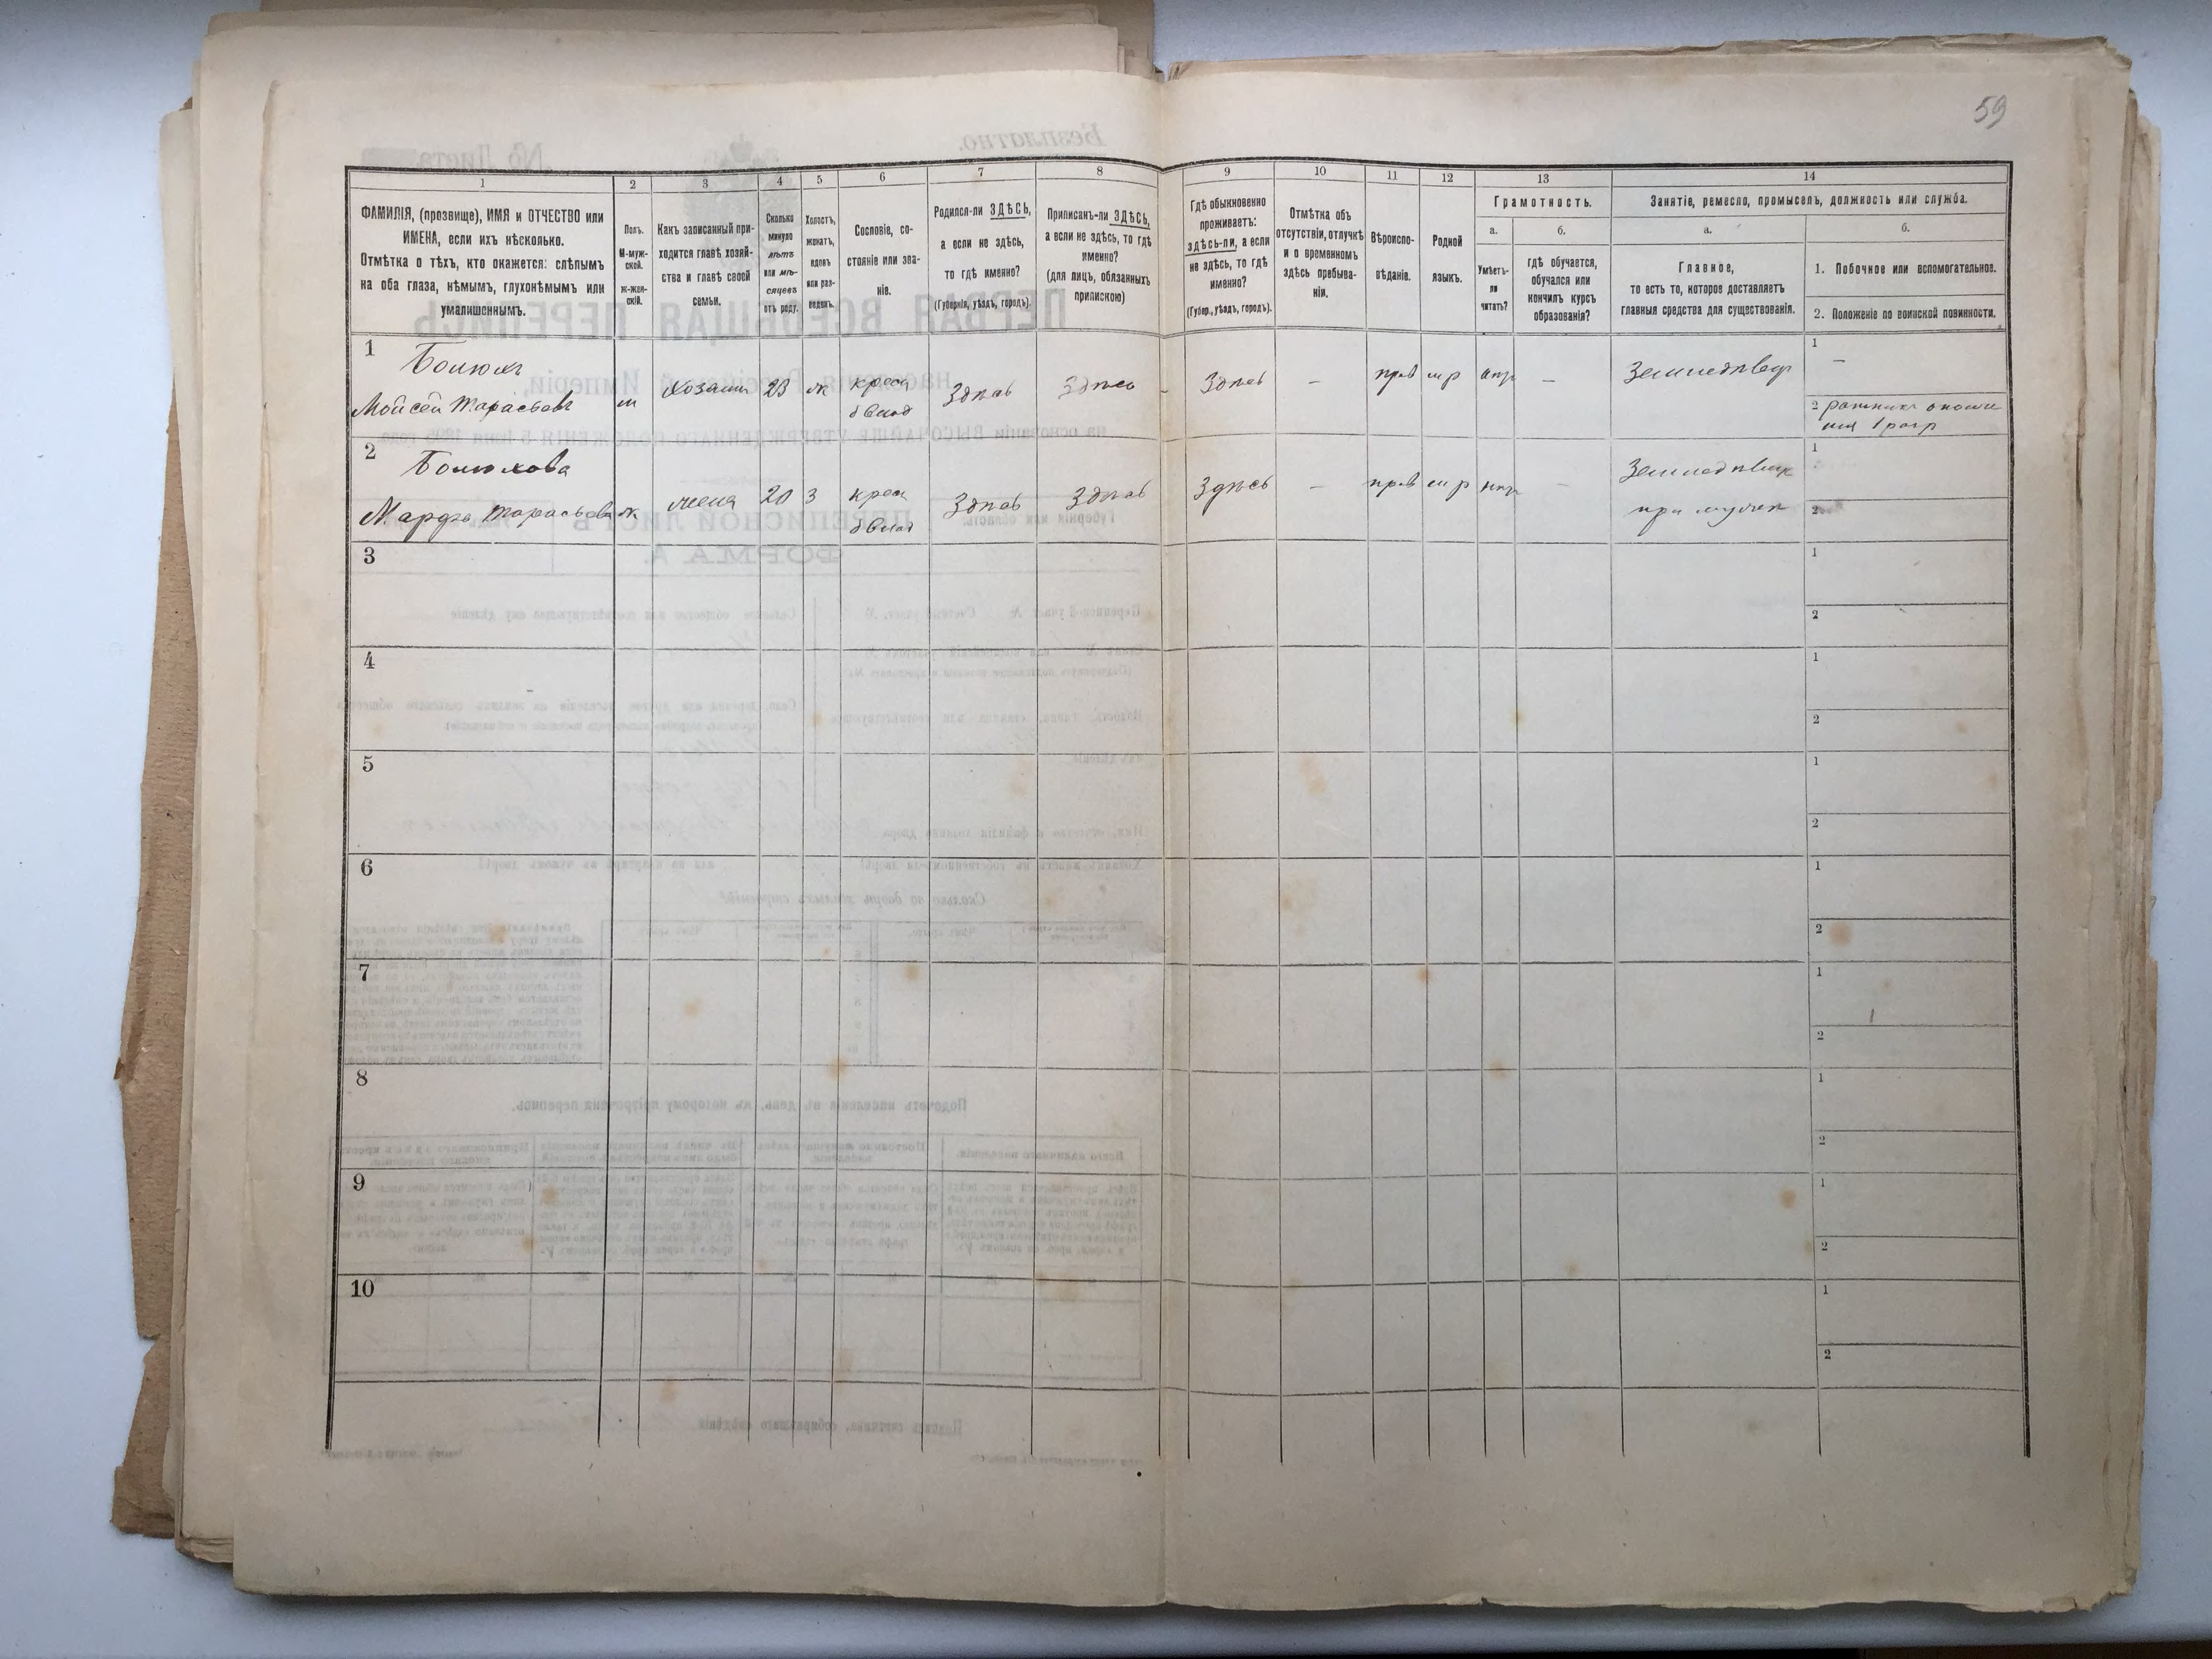 59
1
2
3
4
5
6
7
8
9
10
11
12
13
14
ФАМИЛІЯ, (прозвище), ИМЯ и ОТЧЕСТВО или
ИМЕНА, если ихъ нѣсколько.
Отмѣтка о тѣхъ, кто окажется: слѣпымъ
на оба глаза, нѣмымъ, глухонѣмымъ или
умалишеннымъ.
Полъ.
М-муж-
ской.
ж-жен-
скій.
Какъ записанный при-
ходится главѣ хозяй-
ства и главѣ своей
семьи.
Сколько
минуло
лѣтъ
или мѣ-
сяцевъ
отъ роду.
Холостъ,
женатъ,
вдовъ
или раз-
веденъ.
Сословіе, со-
стояніе или зва-
ніе.
Родился-ли ЗДѢСЬ,
а если не здѣсь,
то гдѣ именно?
(Губернія, уѣздъ, городъ).
Приписанъ-ли ЗДѢСЬ,
а если не здѣсь, то гдѣ
именно?
(для лицъ, обязанныхъ
припискою)
Гдѣ обыкновенно
проживаетъ:
здѣсь-ли, а если
не здѣсь, то гдѣ
именно?
(Губер., уѣздъ, городъ).
Отмѣтка объ
отсутствіи, отлучкѣ
и о временномъ
здѣсь пребыва-
ніи.
Вѣроиспо-
вѣданіе.
Родной
языкъ.
Грамотность.
а.
б.
Умѣетъ-
ли
читать?
гдѣ обучается,
обучался или
кончилъ курсъ
образованія?
Занятіе, ремесло, промыселъ, должность или служба.
а.
б.
Главное,
то есть то, которое доставляетъ
главныя средства для существованія.
1. Побочное или вспомогательное.
2. Положеніе по воинской повинности.
1
Моисей Тарасьевъ
м
хозаин
23
ж
крест
Здѣсь
Здѣсь
Здѣсь
—
прав
мр
—
Земледѣлец
1
—
2 ратникъ ополче
нія 1 разр
2
Марфа Тарасьева
ж
жена
20
з
крест
Здѣсь
Здѣсь
Здѣсь
—
прав
мр
—
при мужѣ
1
2
3
1
2
4
1
2
5
1
2
6
1
2
7
1
2
8
1
2
9
1
2
10
1
2